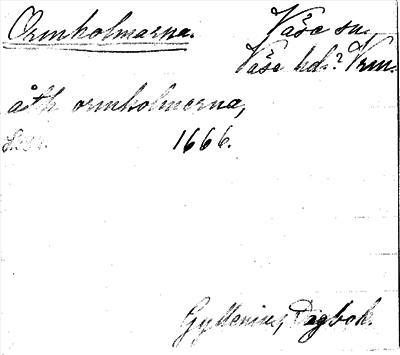 Ormholmarna. Väse sn,
Väse hd.? Vrm.
åth ormholmerna,
1666.
Gyllenius, Dagbok.